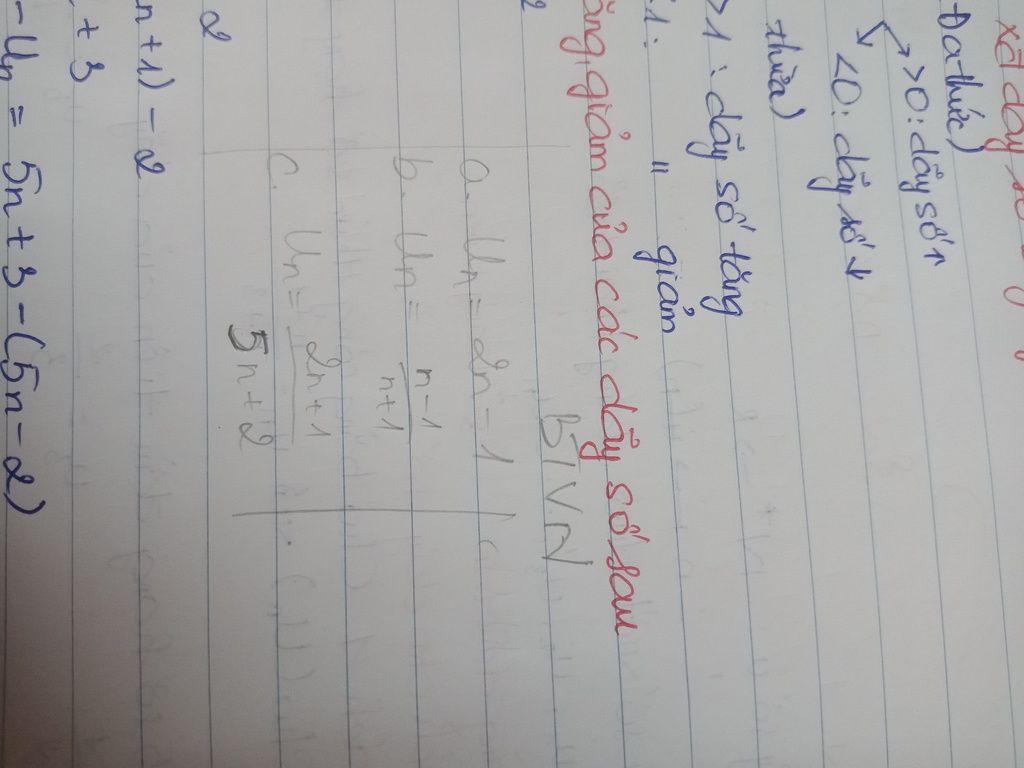 xét dãy số
Đa thức)
> 0 : dãy số ↑
< 0 : dãy số ↓
thừa)
> 1 : dãy số tăng
1 : " giảm
ăng, giảm của các dãy số sau
BTVN
a. Un = 2n - 1
b. Un = n - 1 / n + 1
c. Un = 2n + 1 / 5n + 2
2
n + 1) - 2
+ 3
- Un = 5n + 3 - (5n - 2)